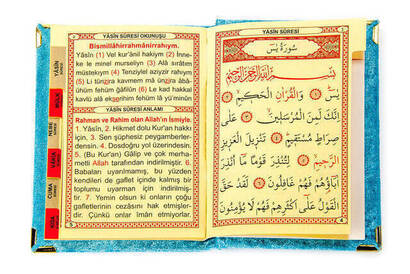 YÂSÎN SÛRESİ OKUNUŞU
Bismillâhirrahmânirrahıym.
Yâsîn (1) Vel kur'ânil hakiym (2) İnne-
ke le minel murseliyn (3) Alâ sırâtım
müstekıym (4) Tenziylel aziyzir rahıym
(5) Li tünzira kavmem mâ ünzira âbâ-
ühüm fehüm ğâfilûn (6) Le kad hakkal
kavlü alâ ekserihim fehüm lâ yü'minûn
YÂSÎN SÛRESİ ANLAMI
Rahman ve Rahim olan Allah'ın İsmiyle.
1. Yâsîn, 2. Hikmet dolu Kur'an hakkı
için, 3. Sen şüphesiz peygamberler-
densin. 4. Dosdoğru yol üzerindesin.
5. (Bu Kur'an) Gâlip ve çok merha-
metli Allah tarafından indirilmiştir. 6.
Babaları uyarılmamış, bu yüzden
kendileri de gaflet içinde kalmış bir
toplumu uyarman için indirilmiş-
tir. 7. Yemin olsun ki onların çoğu
gafletlerinin cezasını hak etmişler-
dir. Çünkü onlar îman etmiyorlar.
YÂSÎN
MÜLK
NEBE
CUMA
KISA
YÂSÎN SÛRESİ
سُورَةُ يٰسٓ
بِسْمِ اللّٰهِ الرَّحْمٰنِ الرَّحِيمِ
يٰسٓ ﴿١﴾ وَالْقُرْاٰنِ الْحَكِيمِ ﴿٢﴾
اِنَّكَ لَمِنَ الْمُرْسَلِينَ ﴿٣﴾ عَلٰى
صِرَاطٍ مُسْتَقِيمٍ ﴿٤﴾ تَنْزِيلَ الْعَزِيزِ
الرَّحِيمِ ﴿٥﴾ لِتُنْذِرَ قَوْمًا مَٓا اُنْذِرَ
اٰبَٓاؤُهُمْ فَهُمْ غَافِلُونَ ﴿٦﴾ لَقَدْ حَقَّ
الْقَوْلُ عَلٰٓى اَكْثَرِهِمْ فَهُمْ لَا يُؤْمِنُونَ